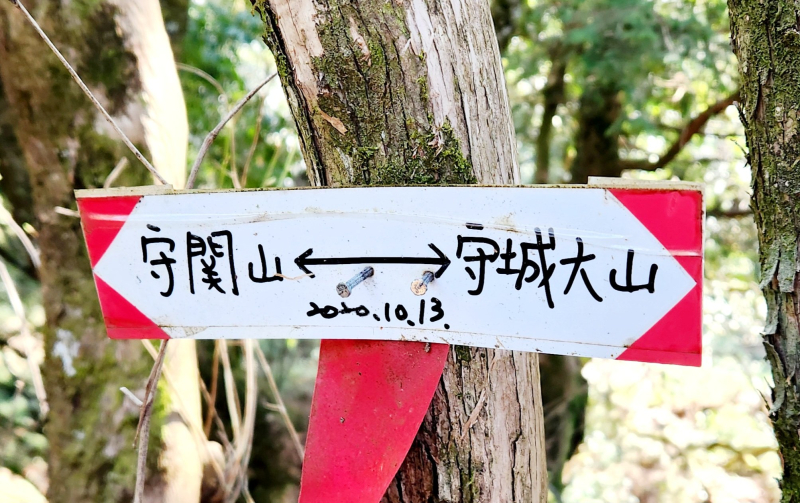 守関山←→守城大山
2020.10.13.